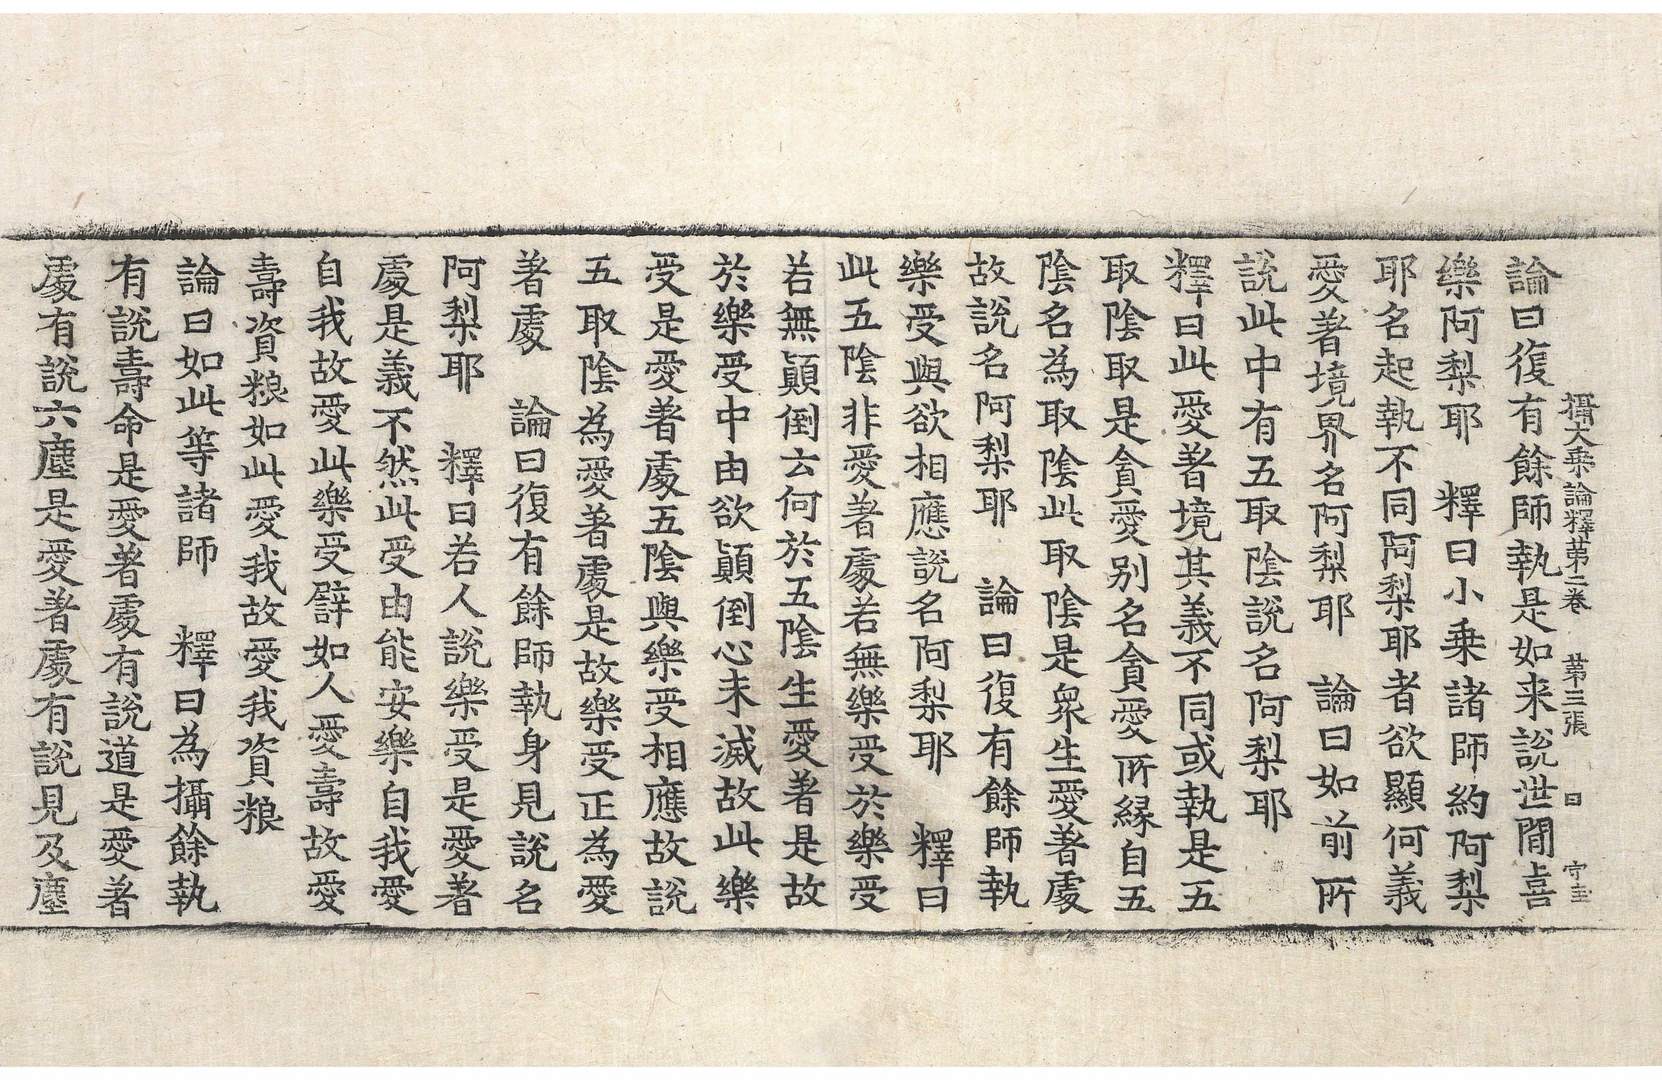 攝大乗論釋苐二卷　苐三張　曰　守圭
論曰復有餘師執是如来說世閒喜
樂阿梨耶　釋曰小乗諸師約阿梨
耶名起執不同阿梨耶者欲顯何義
愛著境界名阿梨耶　論曰如前所
說此中有五取陰說名阿梨耶
釋曰此愛著境其義不同或執是五
取陰取是貪愛别名貪愛所縁自五
陰名為取陰此取陰是衆生愛著處
故說名阿梨耶　論曰復有餘師執
樂受與欲相應說名阿梨耶　釋曰
此五陰非愛著處若無樂受於樂受
若無顛倒云何於五陰生愛著是故
於樂受中由欲顛倒心未滅故此樂
受是愛著處五陰與樂受相應故說
五取陰為愛著處是故樂受正為愛
著處　論曰復有餘師執身見說名
阿梨耶　釋曰若人說樂受是愛著
處是義不然此受由能安樂自我愛
自我故愛此樂受譬如人愛壽故愛
壽資粮如此愛我故愛我資粮
論曰如此等諸師　釋曰為攝餘執
有說壽命是愛著處有說道是愛著
處有說六塵是愛著處有說見及塵